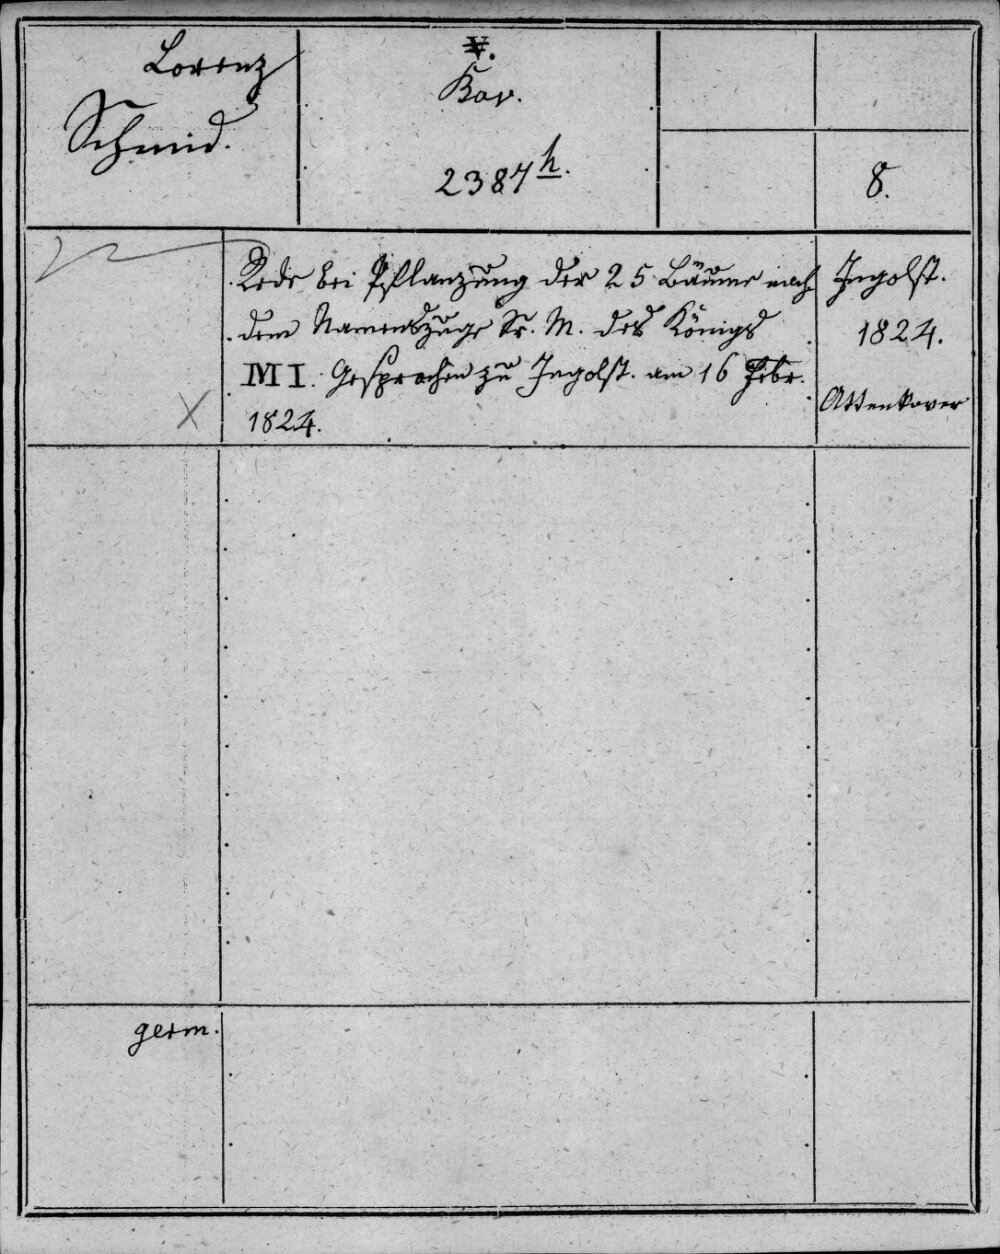 Lorenz
Schmid.
Bav.
2387 h.
8.
Rede bei Pflanzung der 25 Bäume nach
dem Namenszuge Sr. M. des Königs
M I. Gesprochen zu Ingolst. am 16 Febr.
1824.
Ingolst.
1824.
Attenkover
germ.